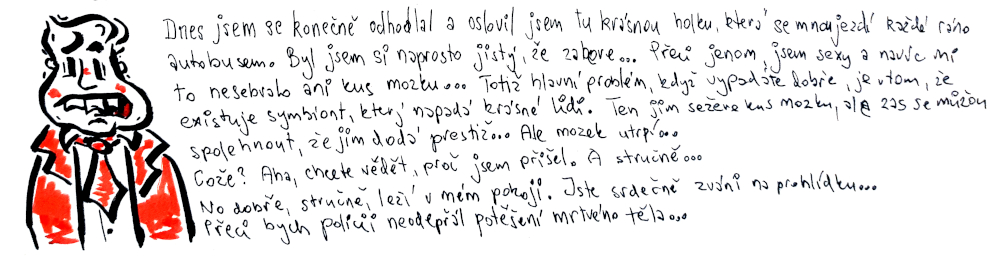 Dnes jsem se konečně odhodlal a oslovil jsem tu krásnou holku, která se mnou jezdí každé ráno
autobusem. Byl jsem si naprosto jistý, že zabere... Přeci jenom, jsem sexy a navíc mi
to nesebralo ani kus mozku... Totiž hlavní problém, když vypadáte dobře, je v tom, že
existuje symbiont, který napadá krásné lidi. Ten jim sežere kus mozku, ale zas se můžou
spolehnout, že jim dodá prestiž... Ale mozek utrpí...
Cože? Aha, chcete vědět, proč jsem přišel. A stručně...
No dobře, stručně, leží v mém pokoji. Jste srdečně zváni na prohlídku...
Přeci bych policii neodepřel potěšení mrtvého těla...